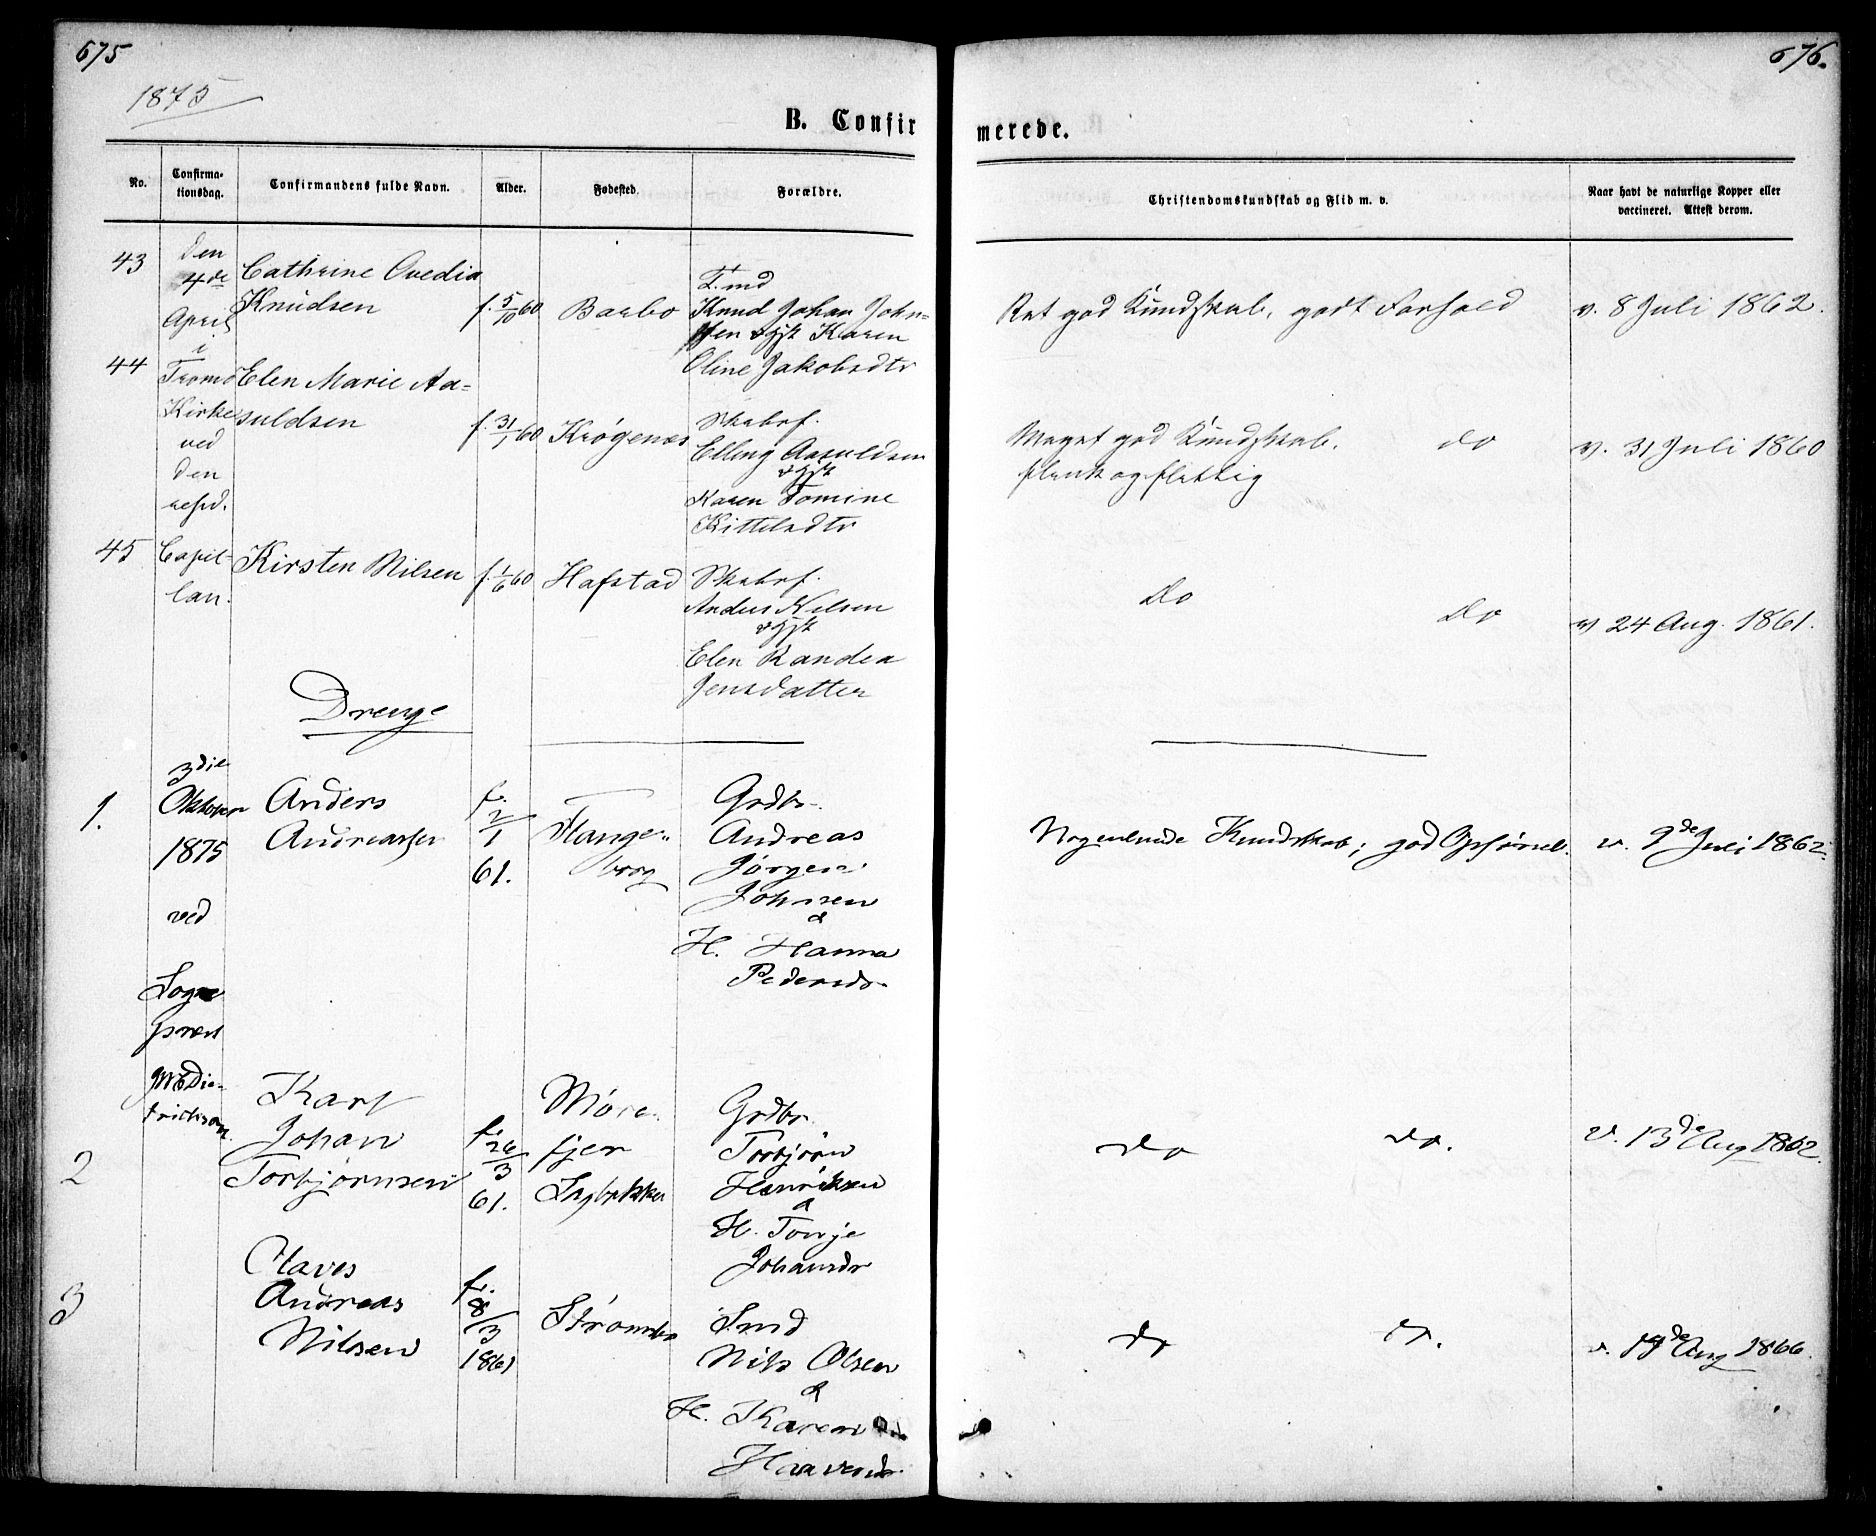 675
676.
1875
B. Confirmerede.
No.
Confirmationsdag.
Confirmandens fulde Navn.
Alder.
Fødested.
Forældre.
Christendomskundskab og Flid m. v.
Naar havt de naturlige Kopper eller
vaccineret. Attest derom.
43
Den
4de
April
i
Tromø
Kirke
ved
den
resid.
Capel-
lan.
Cathrine Ovedia
Knudsen
f. 5/10 60
Barbo
T.md
Knud Johan John-
sen og h Karen
Oline Jakobsdtr
Ret god Kundskab, godt Forhold
v. 8 Juli 1862.
44
Elen Marie Aa-
suldsen
f. 31/1 60
Krøgenæs
Skibsf.
Elling Aasuldsen
Karen Tomine
Kittelsdtr
Meget god Kundskab.
flink og flittig
do
v. 31 Juli 1860
45
Kirsten Nilsen
f. 1/6 60
Hafstad
Skibsf.
Anders Nilsen
Elen Randea
Jensdatter
Do
Do
v 24 Aug. 1861.
Drenge
1.
3die
Oktober
1875
ved
Sogne
præst
Anders
Andreassen
f.
2/1
61.
Flange-
borg
Grdbr.
Andreas
Jørgen
Johnsen
&
H. Hanna
Pedersdr
Nogenlunde Kundskab; god Opførsel.
v. 9de Juli 1862.
2
Karl
Johan
Torbjørnsen
f.
26/3
61.
Møre-
fjer
Grdbr.
Torbjørn
Henriksen
&
H. Tonje
Johansdr
do
do.
v. 13de Aug 1862.
3
Olaves
Andreas
Nilsen
f.
8/3
1861
Strømsbo
Smd
Nils Olsen
&
H. Karen
Haaversdr
do
do.
v. 19de Aug 1866.